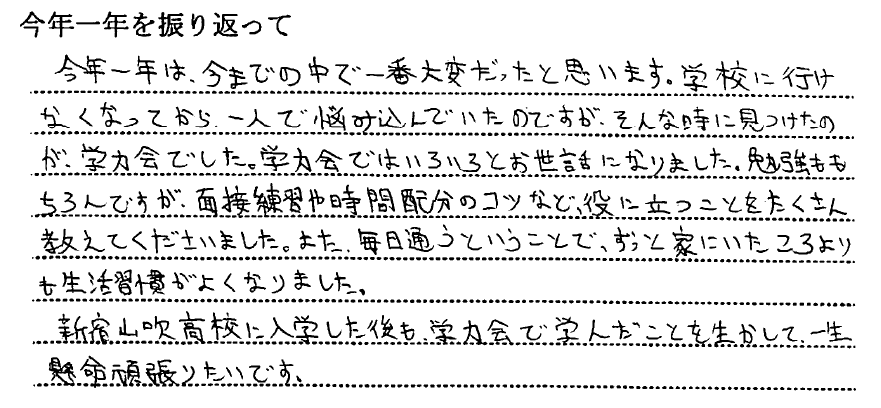 今年一年を振り返って
今年一年は、今までの中で一番大変だったと思います。学校に行け
なくなってから、一人で悩み込んでいたのですが、そんな時に見つけたの
が、学力会でした。学力会ではいろいろとお世話になりました。勉強もも
ちろんですが、面接練習や時間配分のコツなど、役に立つことをたくさん
教えてくださいました。また、毎日通うということで、ずっと家にいたころより
も生活習慣がよくなりました。
新宿山吹高校に入学した後も、学力会で学んだことを生かして、一生
懸命頑張りたいです。